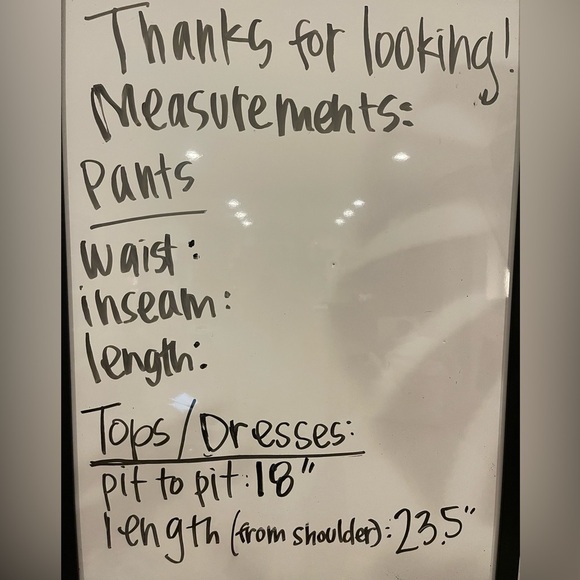 Thanks for looking!
Measurements:
Pants
waist:
inseam:
length:
Tops/Dresses:
pit to pit: 18"
length (from shoulder): 23.5"